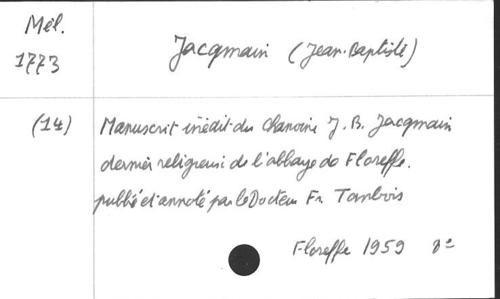 Mél.
1773
Jacqmain (Jean-Baptiste)
(14)
Manuscrit inédit du Chanoine J. B. Jacqmain
dernier religieux de l'abbaye de Floreffe.
publié et annoté par le Docteur Fr. Tombois
Floreffe 1959 8°